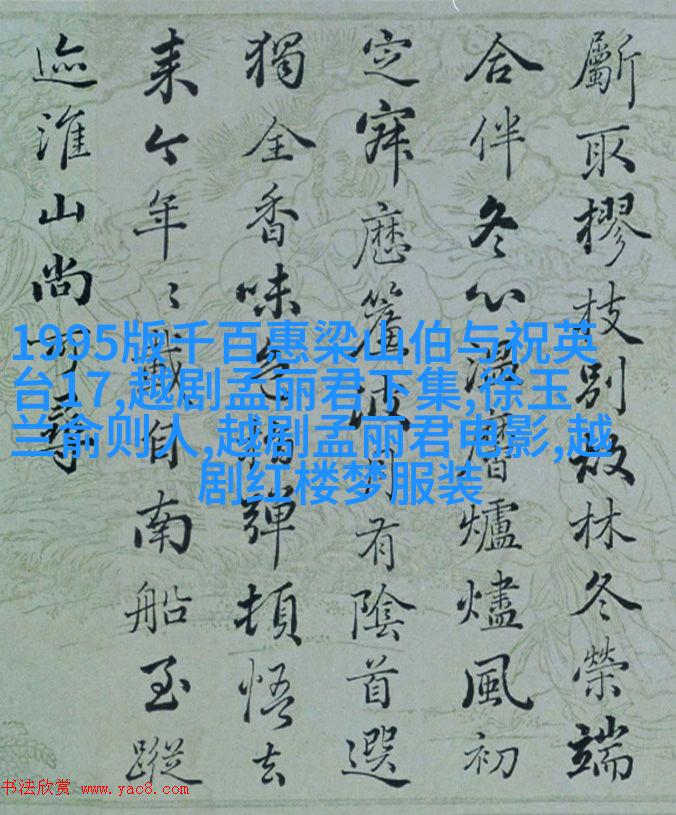 斸取樛枝別故林冬榮端
合伴冬心爐燼風初
定簾波月有陰首選
獨全香味色彈頓悟去
来今年〻識自南船至蹤
迹淮山尚可尋
1995版千百惠梁山伯与祝英
台17,越剧孟丽君下集,徐玉
兰俞则人,越剧孟丽君电影,越
剧红楼梦服装
书法欣赏 www.yac8.com